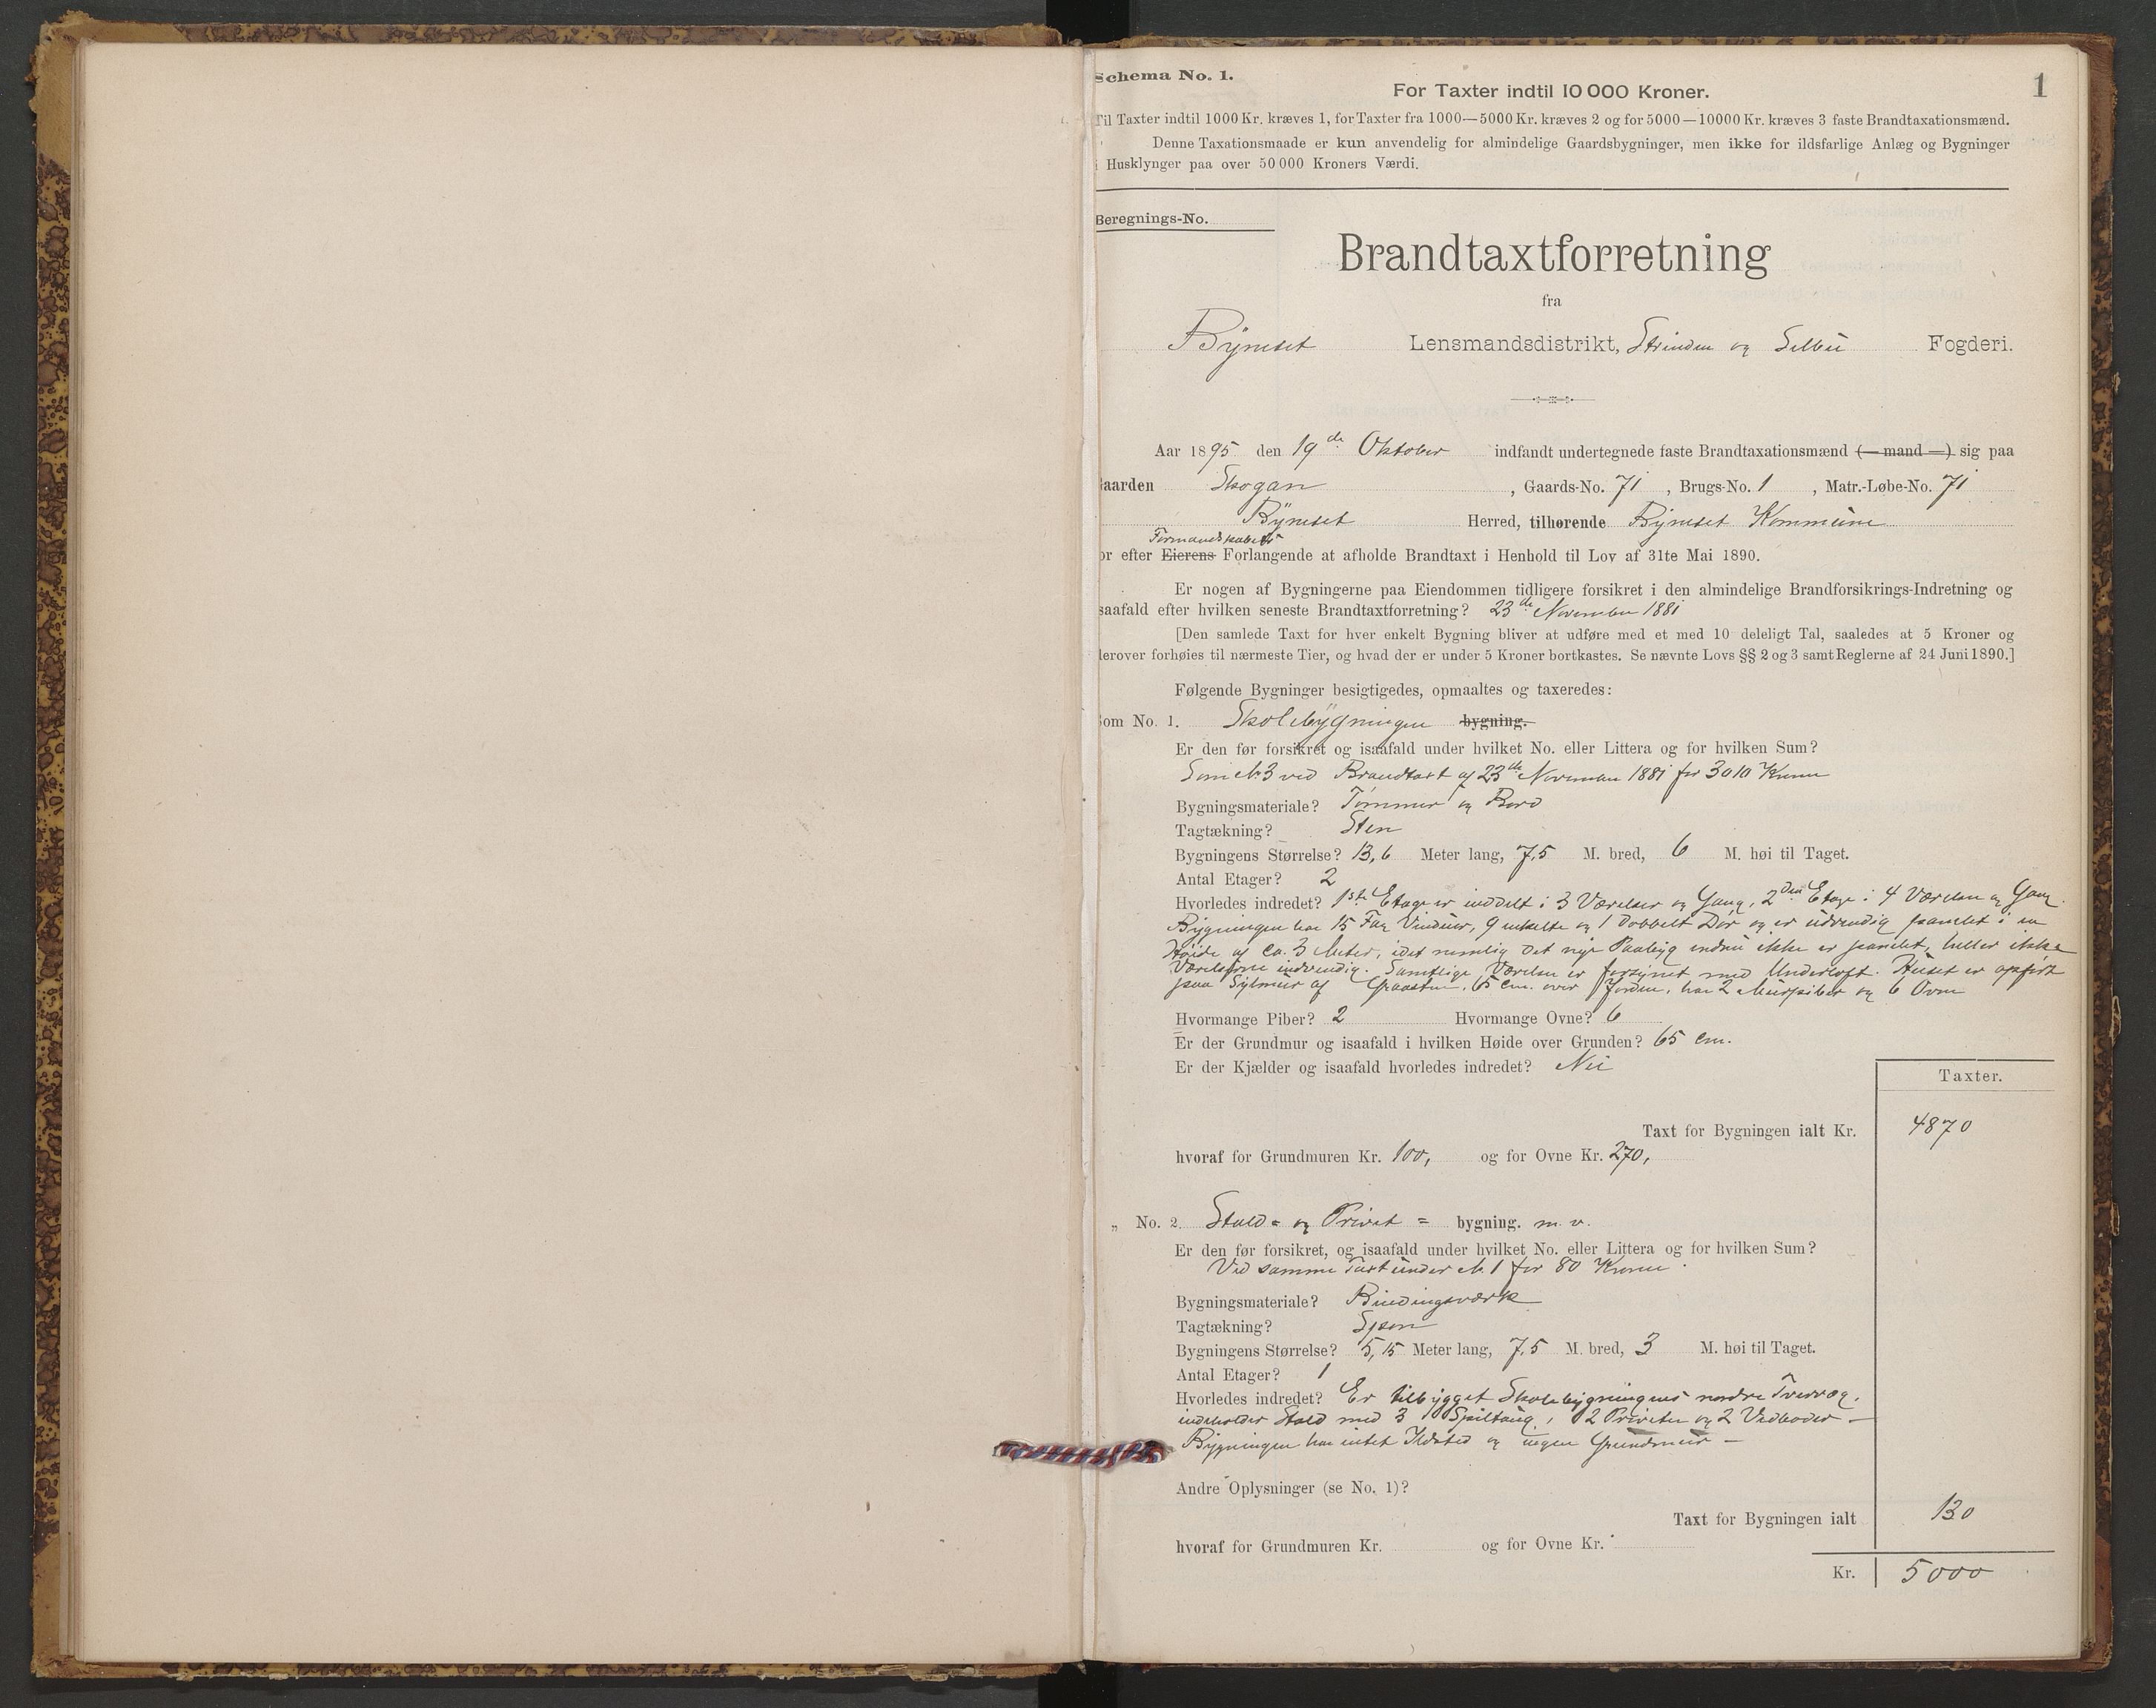 Schema No. 1.
1
For Taxter indtil 10 000 Kroner.
Til Taxter indtil 1000 Kr. kræves 1, for Taxter fra 1000—5000 Kr. kræves 2 og for 5000—10000 Kr. kræves 3 faste Brandtaxationsmænd.
Denne Taxationsmaade er kun anvendelig for almindelige Gaardsbygninger, men ikke for ildsfarlige Anlæg og Bygninger
i Husklynger paa over 50 000 Kroners Værdi.
Beregnings-No.
Brandtaxtforretning
fra
Bÿneset Lensmandsdistrikt, Strinden og Selbu Fogderi.
Aar 1895 den 19de Oktober indfandt undertegnede faste Brandtaxationsmænd (— mand —) sig paa
aarden Skogan , Gaards-No. 71 , Brugs-No. 1 , Matr.-Løbe-No. 71
Bÿneset Herred, tilhørende Bÿneset Kommune
Formandskabets
or efter Eierens Forlangende at afholde Brandtaxt i Henhold til Lov af 31te Mai 1890.
Er nogen af Bygningerne paa Eiendommen tidligere forsikret i den almindelige Brandforsikrings-Indretning og
saafald efter hvilken seneste Brandtaxtforretning? 23de November 1881
[Den samlede Taxt for hver enkelt Bygning bliver at udføre med et med 10 deleligt Tal, saaledes at 5 Kroner og
derover forhøies til nærmeste Tier, og hvad der er under 5 Kroner bortkastes. Se nævnte Lovs §§ 2 og 3 samt Reglerne af 24 Juni 1890.]
Følgende Bygninger besigtigedes, opmaaltes og taxeredes:
Som No. 1. Skolebÿgningen bygning.
Er den før forsikret og isaafald under hvilket No. eller Littera og for hvilken Sum?
Som № 3 ved Brandtaxt af 23de November 1881 for 3010 Kroner
Bygningsmateriale? Tømmer og Bord
Tagtækning? Sten
Bygningens Størrelse? 13,6 Meter lang, 7,5 M. bred, 6 M. høi til Taget.
Antal Etager? 2
Hvorledes indredet? 1ste Etage er inddelt i 3 Værelser og Gang, 2den Etage i 4 Værelser og Gang.
Bygningen har 15 Fag Vinduer, 9 enkelte og 1 dobbelt Dør og er udvendig panelet i en
Høide af ca. 3 Meter, idet nemlig det nye Paabyg endnu ikke er panelet, heller ikke
Værelserne indvendig. Samtlige Værelser er forsynet med Underloft. Huset er opført
paa Sylmur af Graasten, 65 cm. over Jorden, har 2 Murpiber og 6 Ovne
Hvormange Piber? 2 Hvormange Ovne? 6
Er der Grundmur og isaafald i hvilken Høide over Grunden? 65 cm.
Er der Kjælder og isaafald hvorledes indredet? Nei
Taxter.
Taxt for Bygningen ialt Kr. 4870
hvoraf for Grundmuren Kr. 100, og for Ovne Kr. 270,
„ No. 2. Stald= og Privet = bygning. m. v.
Er den før forsikret, og isaafald under hvilket No. eller Littera og for hvilken Sum?
Ved samme Taxt under № 1 for 80 Kroner.
Bygningsmateriale? Bindingsværk
Tagtækning? Spon
Bygningens Størrelse? 5,15 Meter lang, 7,5 M. bred, 3 M. høi til Taget.
Antal Etager? 1
Hvorledes indredet? Er tilbygget Skolebygningens nordre Tvervæg,
indeholder Stald med 3 Spiltaug, 2 Priveter og 2 Vedboder —
Bygningen har intet Ildsted og ingen Grundmur —
Andre Oplysninger (se No. 1)?
Taxt for Bygningen ialt 130
hvoraf for Grundmuren Kr. og for Ovne Kr.
Kr. 5000